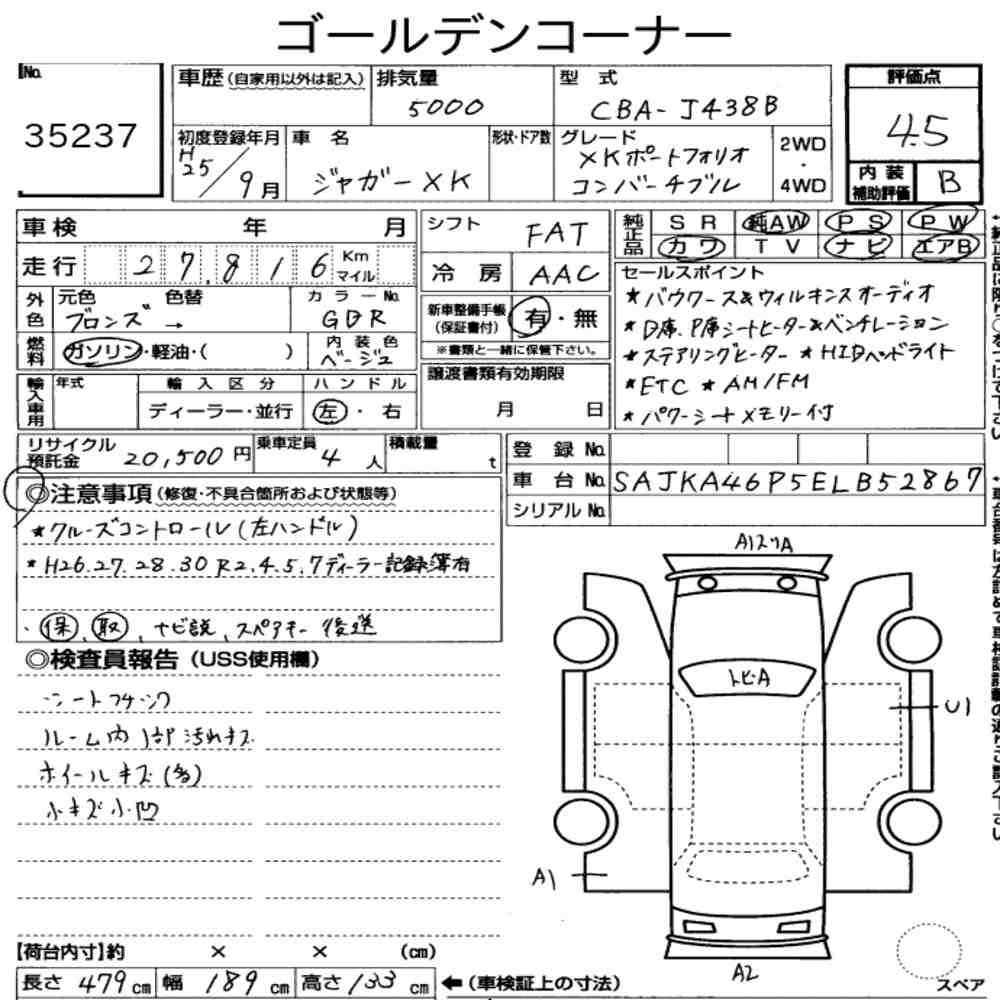 ゴールデンコーナー
No.
35237
車歴(自家用以外は記入)
排気量
5000
型 式
CBA-J438B
評価点
4.5
内装補助評価
B
初度登録年月
H25/9月
車 名
ジャガーXK
形状・ドア数
グレード
XKポートフォリオ
コンバーチブル
2WD
・
4WD
車検 年 月
シフト
FAT
純正品
SR 純AW PS PW
カワ TV ナビ エアB
走行 27,816 Km マイル
冷房
AAC
セールスポイント
★バウワース&ウィルキンスオーディオ
★D席、P席シートヒーター&ベンチレーション
★ステアリングヒーター ★HIDヘッドライト
★ETC ★AM/FM
★パワーシートメモリー付
外色
元色 色替
ブロンズ →
カラーNo.
GBR
新車整備手帳
(保証書付)
有・無
※書類と一緒に保管下さい。
燃料
ガソリン・軽油・( )
内装色
ベージュ
譲渡書類有効期限
月 日
輸入車用
年式
輸入区分
ディーラー・並行
ハンドル
左・右
リサイクル預託金
20,500円
乗車定員
4人
積載量
t
登録No.
車台No.
SAJKA46P5ELB52867
シリアルNo.
◎注意事項(修復・不具合箇所および状態等)
★クルーズコントロール(左ハンドル)
★H26.27.28.30 R2.4.5.7ディーラー記録簿有
・保、取、ナビ説、スペアキー後送
◎検査員報告(USS使用欄)
シート
ルーム内 1部汚れキズ
ホイールキズ(多)
小キズ小凹
A1スリA
トビA
U1
A1
A2
スペア
【荷台内寸】約 × × (cm)
長さ 479cm 幅 189cm 高さ 133cm
←(車検証上の寸法)